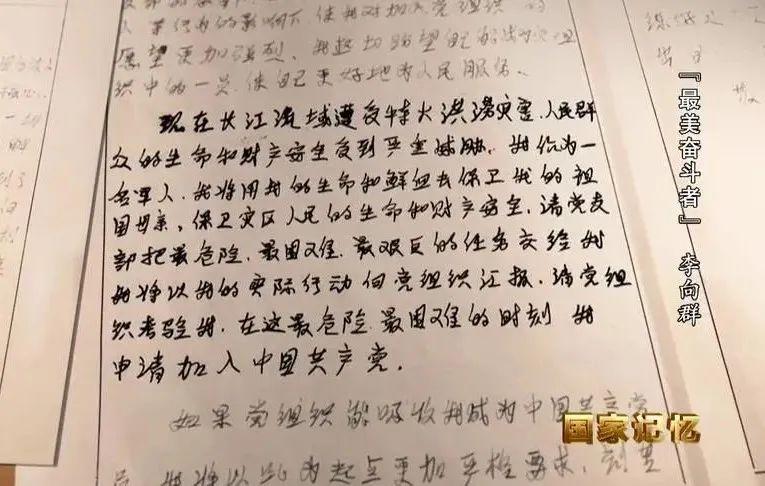 人
影响下,使我对加入党组织的
愿望更加强烈,我热切盼望自己能成为党组
织中的一员,使自己更好地为人民服务。
现在长江流域遭受特大洪涝灾害,人民群
众的生命和财产安全受到严重威胁,我作为一
名军人,我将用我的生命和鲜血去保卫我的祖
国母亲,保卫灾区人民的生命和财产安全,请党支
部把最危险、最困难、最艰巨的任务交给我
我将以我的实际行动向党组织汇报,请党组
织考验我,在这最危险、最困难的时刻 我
申请加入中国共产党。
如果党组织能吸收我成为中国共产党
员,我将以此为起点更加严格要求,
『最美奋斗者』 李向群
国家记忆